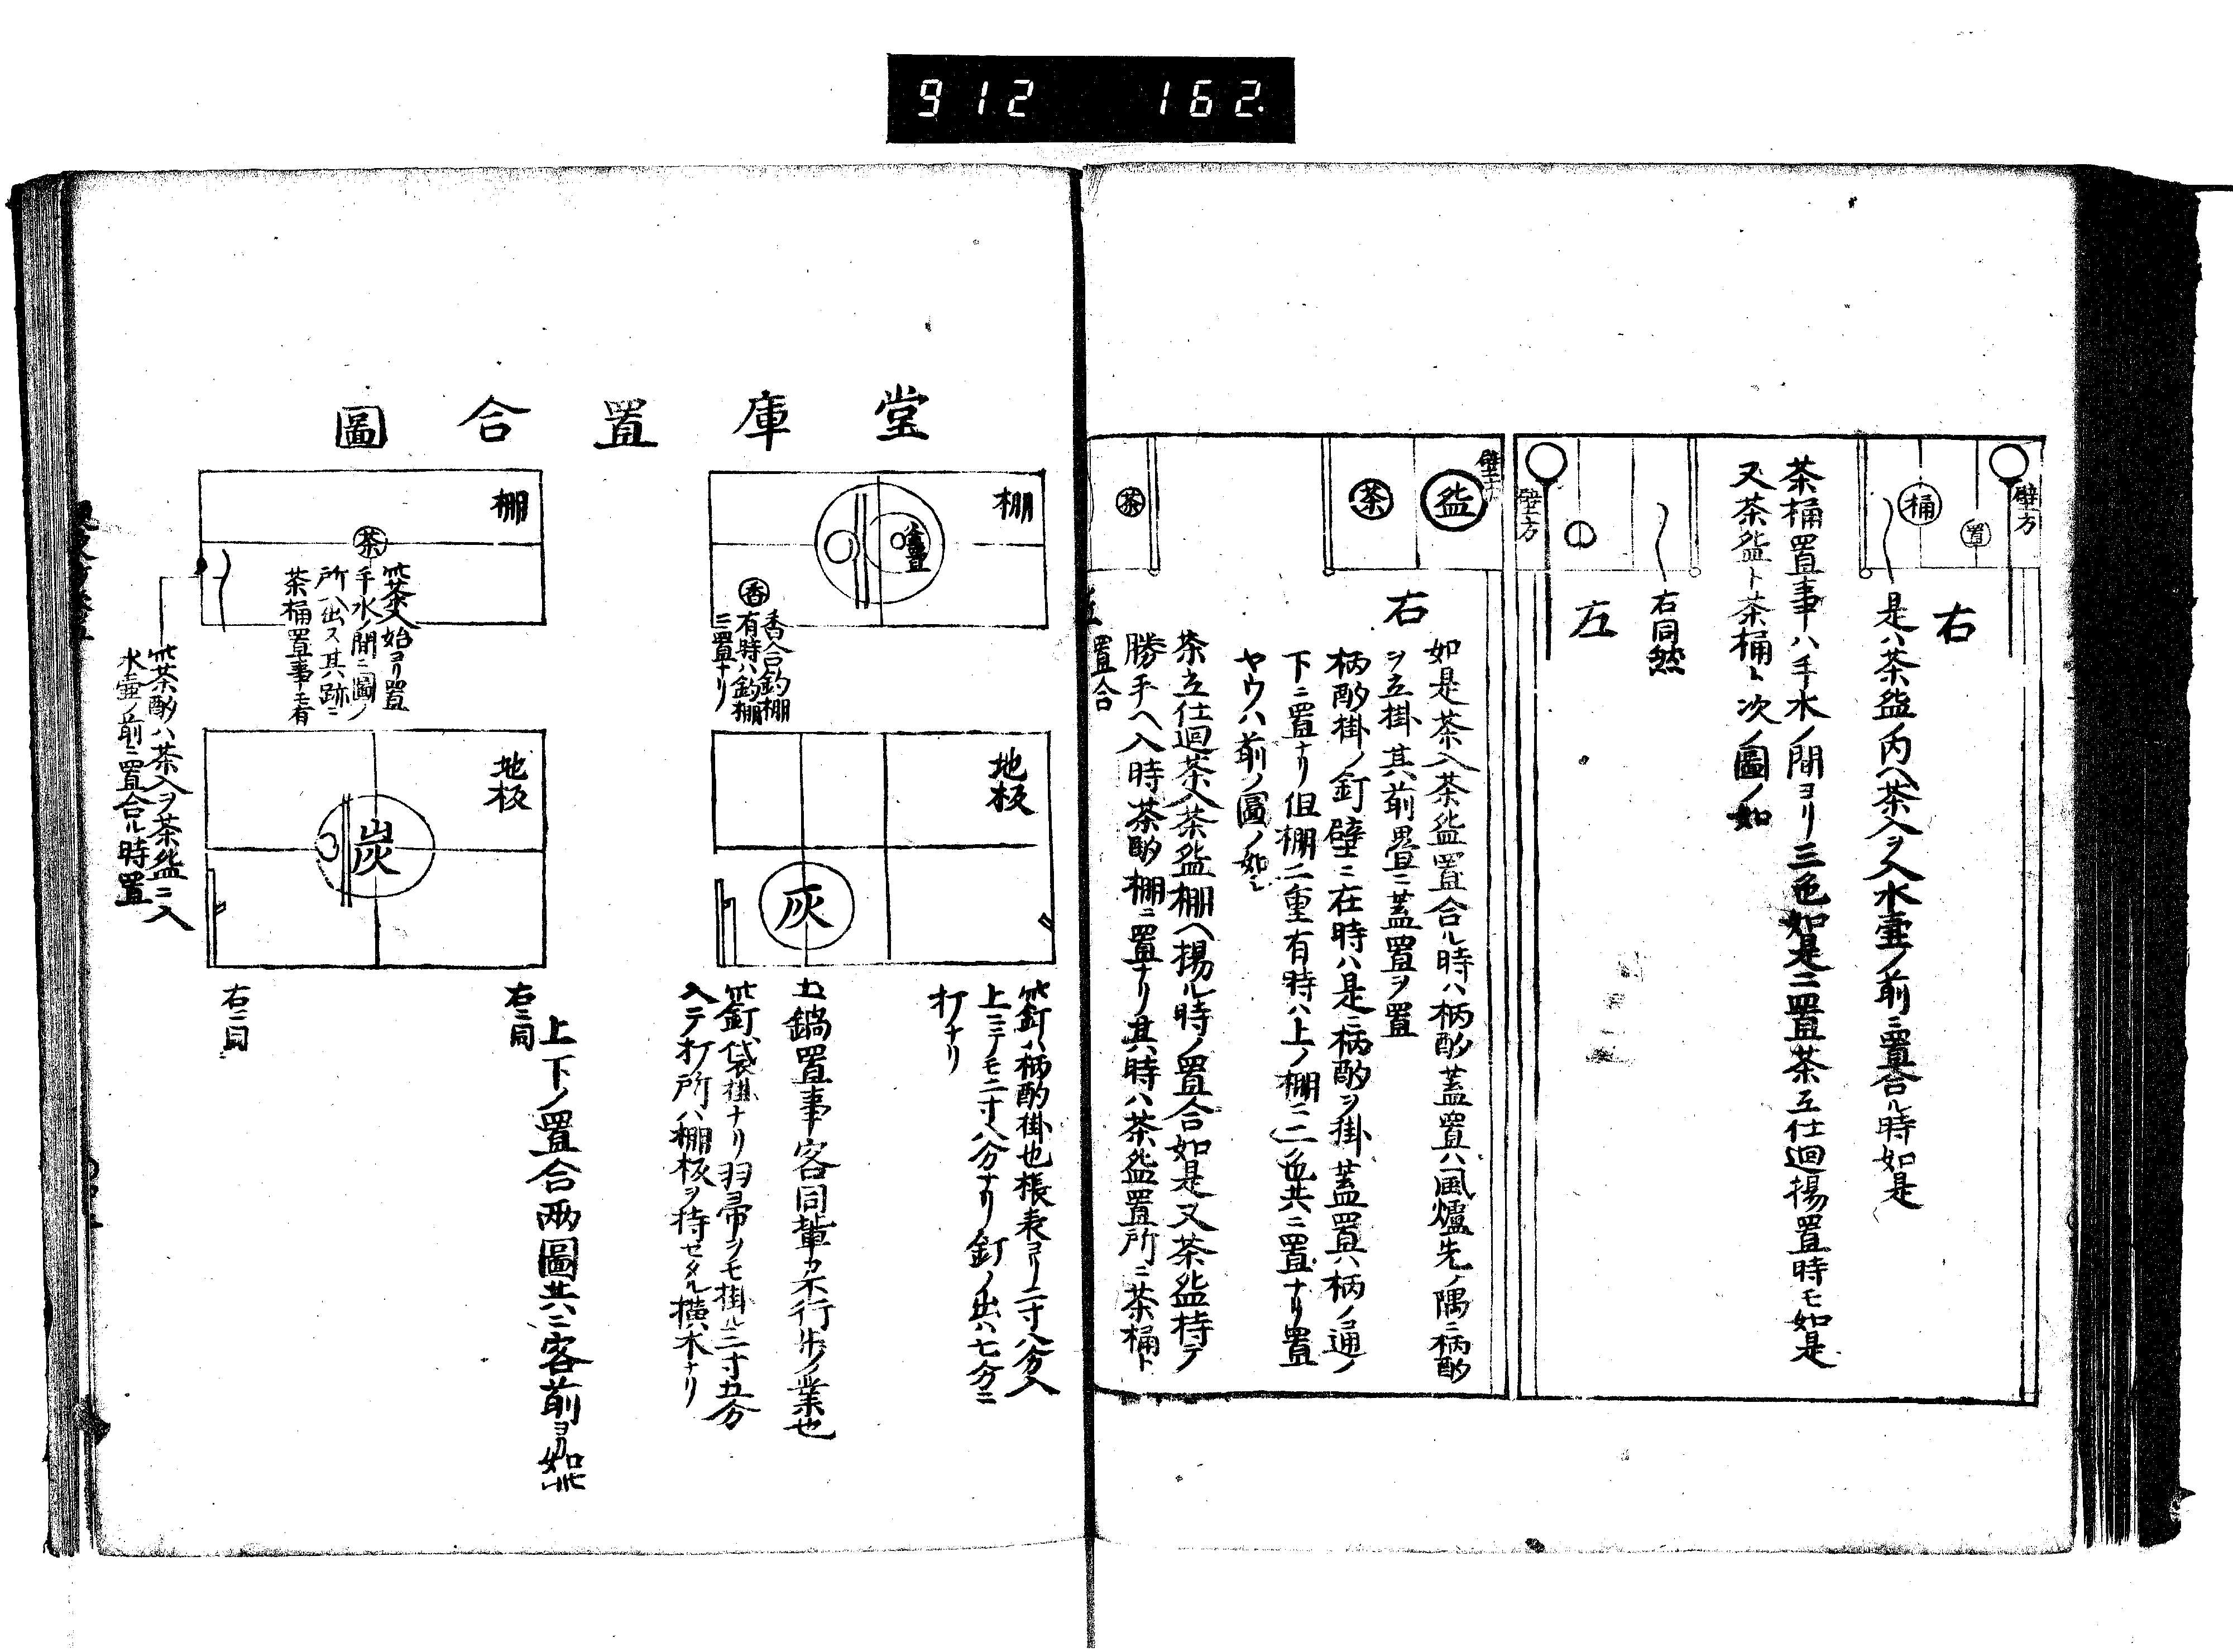 912 162
壁方
置
桶
右
是ハ茶盌ノ内ヘ茶入ヲ入水壷ノ前ニ置合ル時如是
茶桶置事ハ手水ノ間ヨリ三色如是ニ置茶立仕廻揚置時モ如是
又茶盌ト茶桶ト次ノ圖ノ如
右同然
左
壁方
壁方
盌
茶
右
如是茶入茶盌置合ル時ハ柄酌蓋置ハ風爐先ノ隅ニ柄酌
ヲ立掛其前畳ニ蓋置ヲ置
柄酌掛ノ釘壁ニ在時ハ是ニ柄酌ヲ掛蓋置ハ柄ノ通ノ
下ニ置ナリ但棚二重有時ハ上ノ棚ニ二色共ニ置ナリ置
ヤウハ前ノ圖ノ如シ
茶立仕廻茶入茶盌棚ヘ揚ル時ノ置合如是又茶盌持テ
勝手ヘ入時茶酌棚ニ置ナリ其時ハ茶盌置所ニ茶桶ト
置合
茶
堂庫置合圖
棚
香
香合釣棚
有時ハ釣棚
ニ置ナリ
地板
灰
此釘ハ柄酌掛也張表ヨリ二寸八分入
上ニテモ二寸八分ナリ釘ノ出ハ七分ニ
打ナリ
土鍋置事客同輩カ不行歩ノ業也
此釘袋掛ナリ羽帚ヲモ掛ル二寸五分
入テ打所ハ棚板ヲ持セタル横木ナリ
棚
茶
此茶入始ヨリ置
手水ノ間ニ圖ノ
所ヘ出ス其跡ニ
茶桶置事モ有
地板
炭
上下ノ置合両圖共ニ客前ヨリ如此
右ニ同
右ニ同
此茶酌ハ茶入ヲ茶盌ニ入
水壷ノ前ニ置合ル時置